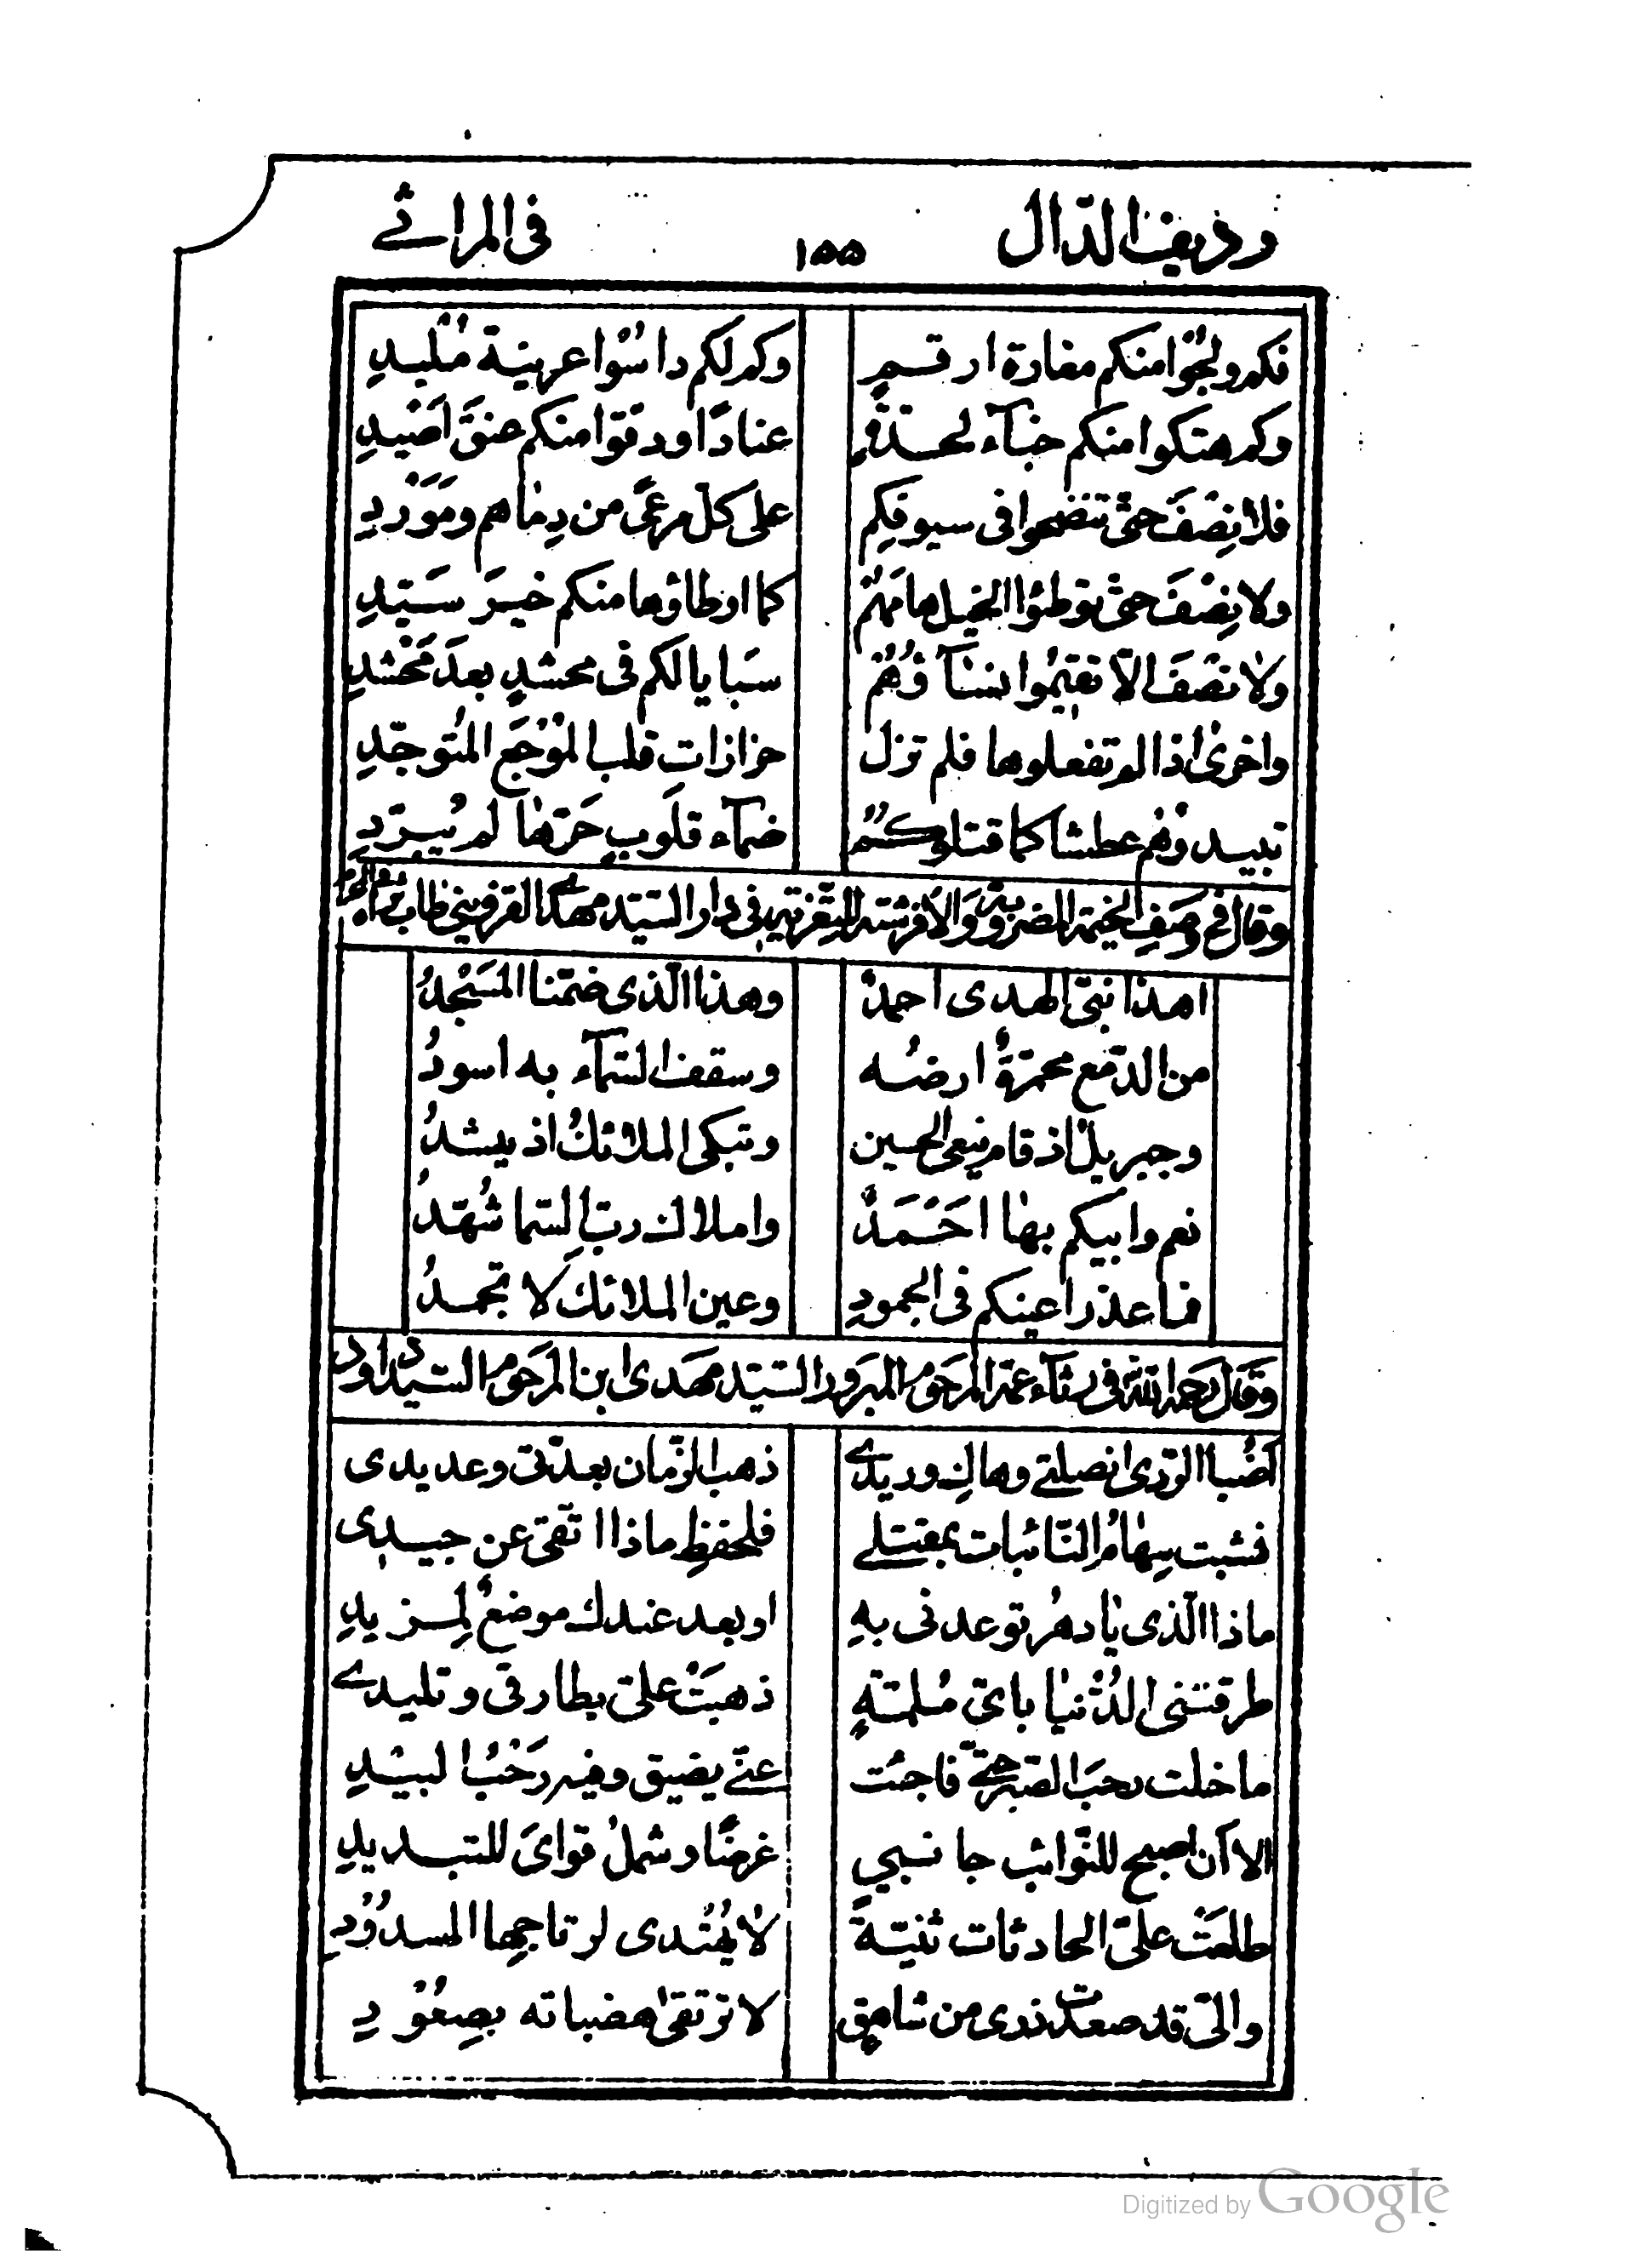 ردیف الدّال ١٥٥ فی المراثے
فکم ولجوُا منکم مغارة ارقمٍ وکم لکم داسُوا عرینة مُلبدِ
وکم هتکوا منکم خبآء لحرّة عنادًا ودقوا منکم عنقَ اَصْیدِ
فلا نِصْفَ حتّی تنضحوا فی سیوفکم علی کلّ مرعًی من دِماهم ومَوْرِدِ
ولا نِصْفَ حتّی توطئوا الخیل هامَهُم کما اوطاؤها منکم خیرَ سَیّدِ
ولا نصْفَ الّا تقیمُوا نسآؤهُم سَبایا لکم فی محشدٍ بعدَ مَحْشدِ
واخری اذا لم تفعلوها فلم تزل حزازات قلب المُوْجَع المُتوجّدِ
تبیدونهم عطشا کما قتلوکمُ ضمآء قلوبٍ حَرّها لم یُبرّدِ
وقال فی وصفِ الخیمة المضروبة والافرشة للتعزیة فی دار السّید مهدی القزوینی طاب ثراه
اهذا نبیّ الهدی احمدٌ وهذا الّذی ضمّنا المَسْجدُ
من الدّمع محمرّةٌ ارضُه وسقف السّمآء به اسودُ
وجبریل اذ قام ینعی الحسین وتبکی الملائكُ اذ ینشدُ
نعم وابیکم بها اَحْمَدٌ واملاك ربّ السّما شُهّدُ
فما عذر اعینکم فی الجمودِ وعین الملائك لا تجمدُ
وقال رحمه اللّه فی رثآء عمّه المرحوم المبرور السّید مهدی ابن المرحوم السّید داود
اَضُبا الرّدی انصلتے وهاكِ وریدے ذهب الزّمان بعدّتی وعدیدی
نشبت سِهامُ النّائبات بمقتلے فلحفظِ ماذا اتّقی عن جیدی
ماذا الّذی یا دهرُ توعدنی بهِ او بعد عندك موضعٌ لمزیدِ
طرقتنی الدّنیا بایّ مُلمّةٍ ذهبَتْ علیّ بطارفی وتلیدے
ما خلت رحبَ الصّبر حتّی فاجئت عنّے یضیق وفیه رَحْبُ البیدِ
الاآن اصبح للنّوائب جانبی غرضًا وشملُ قوایَ للتبدیدِ
طلعَتْ علیّ الحادثات ثنیّةً لا یُهتدی لرتاجها المسدُوْدِ
والتی قد صعدَت ذری من شاهقٍ لا ترتقی هضباته بصِعُوْدِ
Digitized by Google